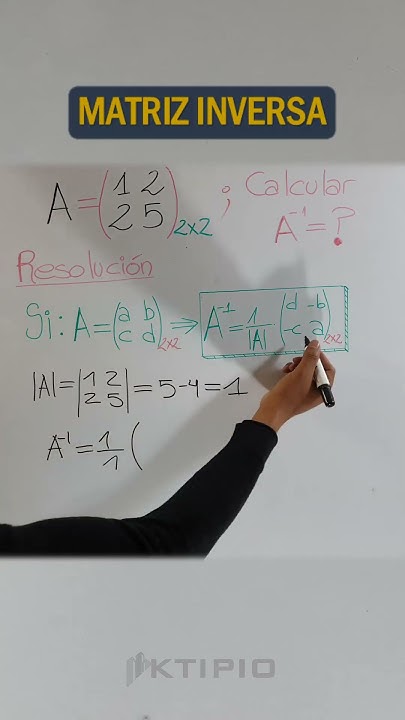 MATRIZ INVERSA
A = (1 2 2 5)2x2 ; Calcular A⁻¹ = ?
Resolución
Si: A = (a b c d)2x2 ⇒ A⁻¹ = 1/|A| (d -b -c a)2x2
|A| = |1 2 2 5| = 5-4 = 1
A⁻¹ = 1/1 (
KTIPIO